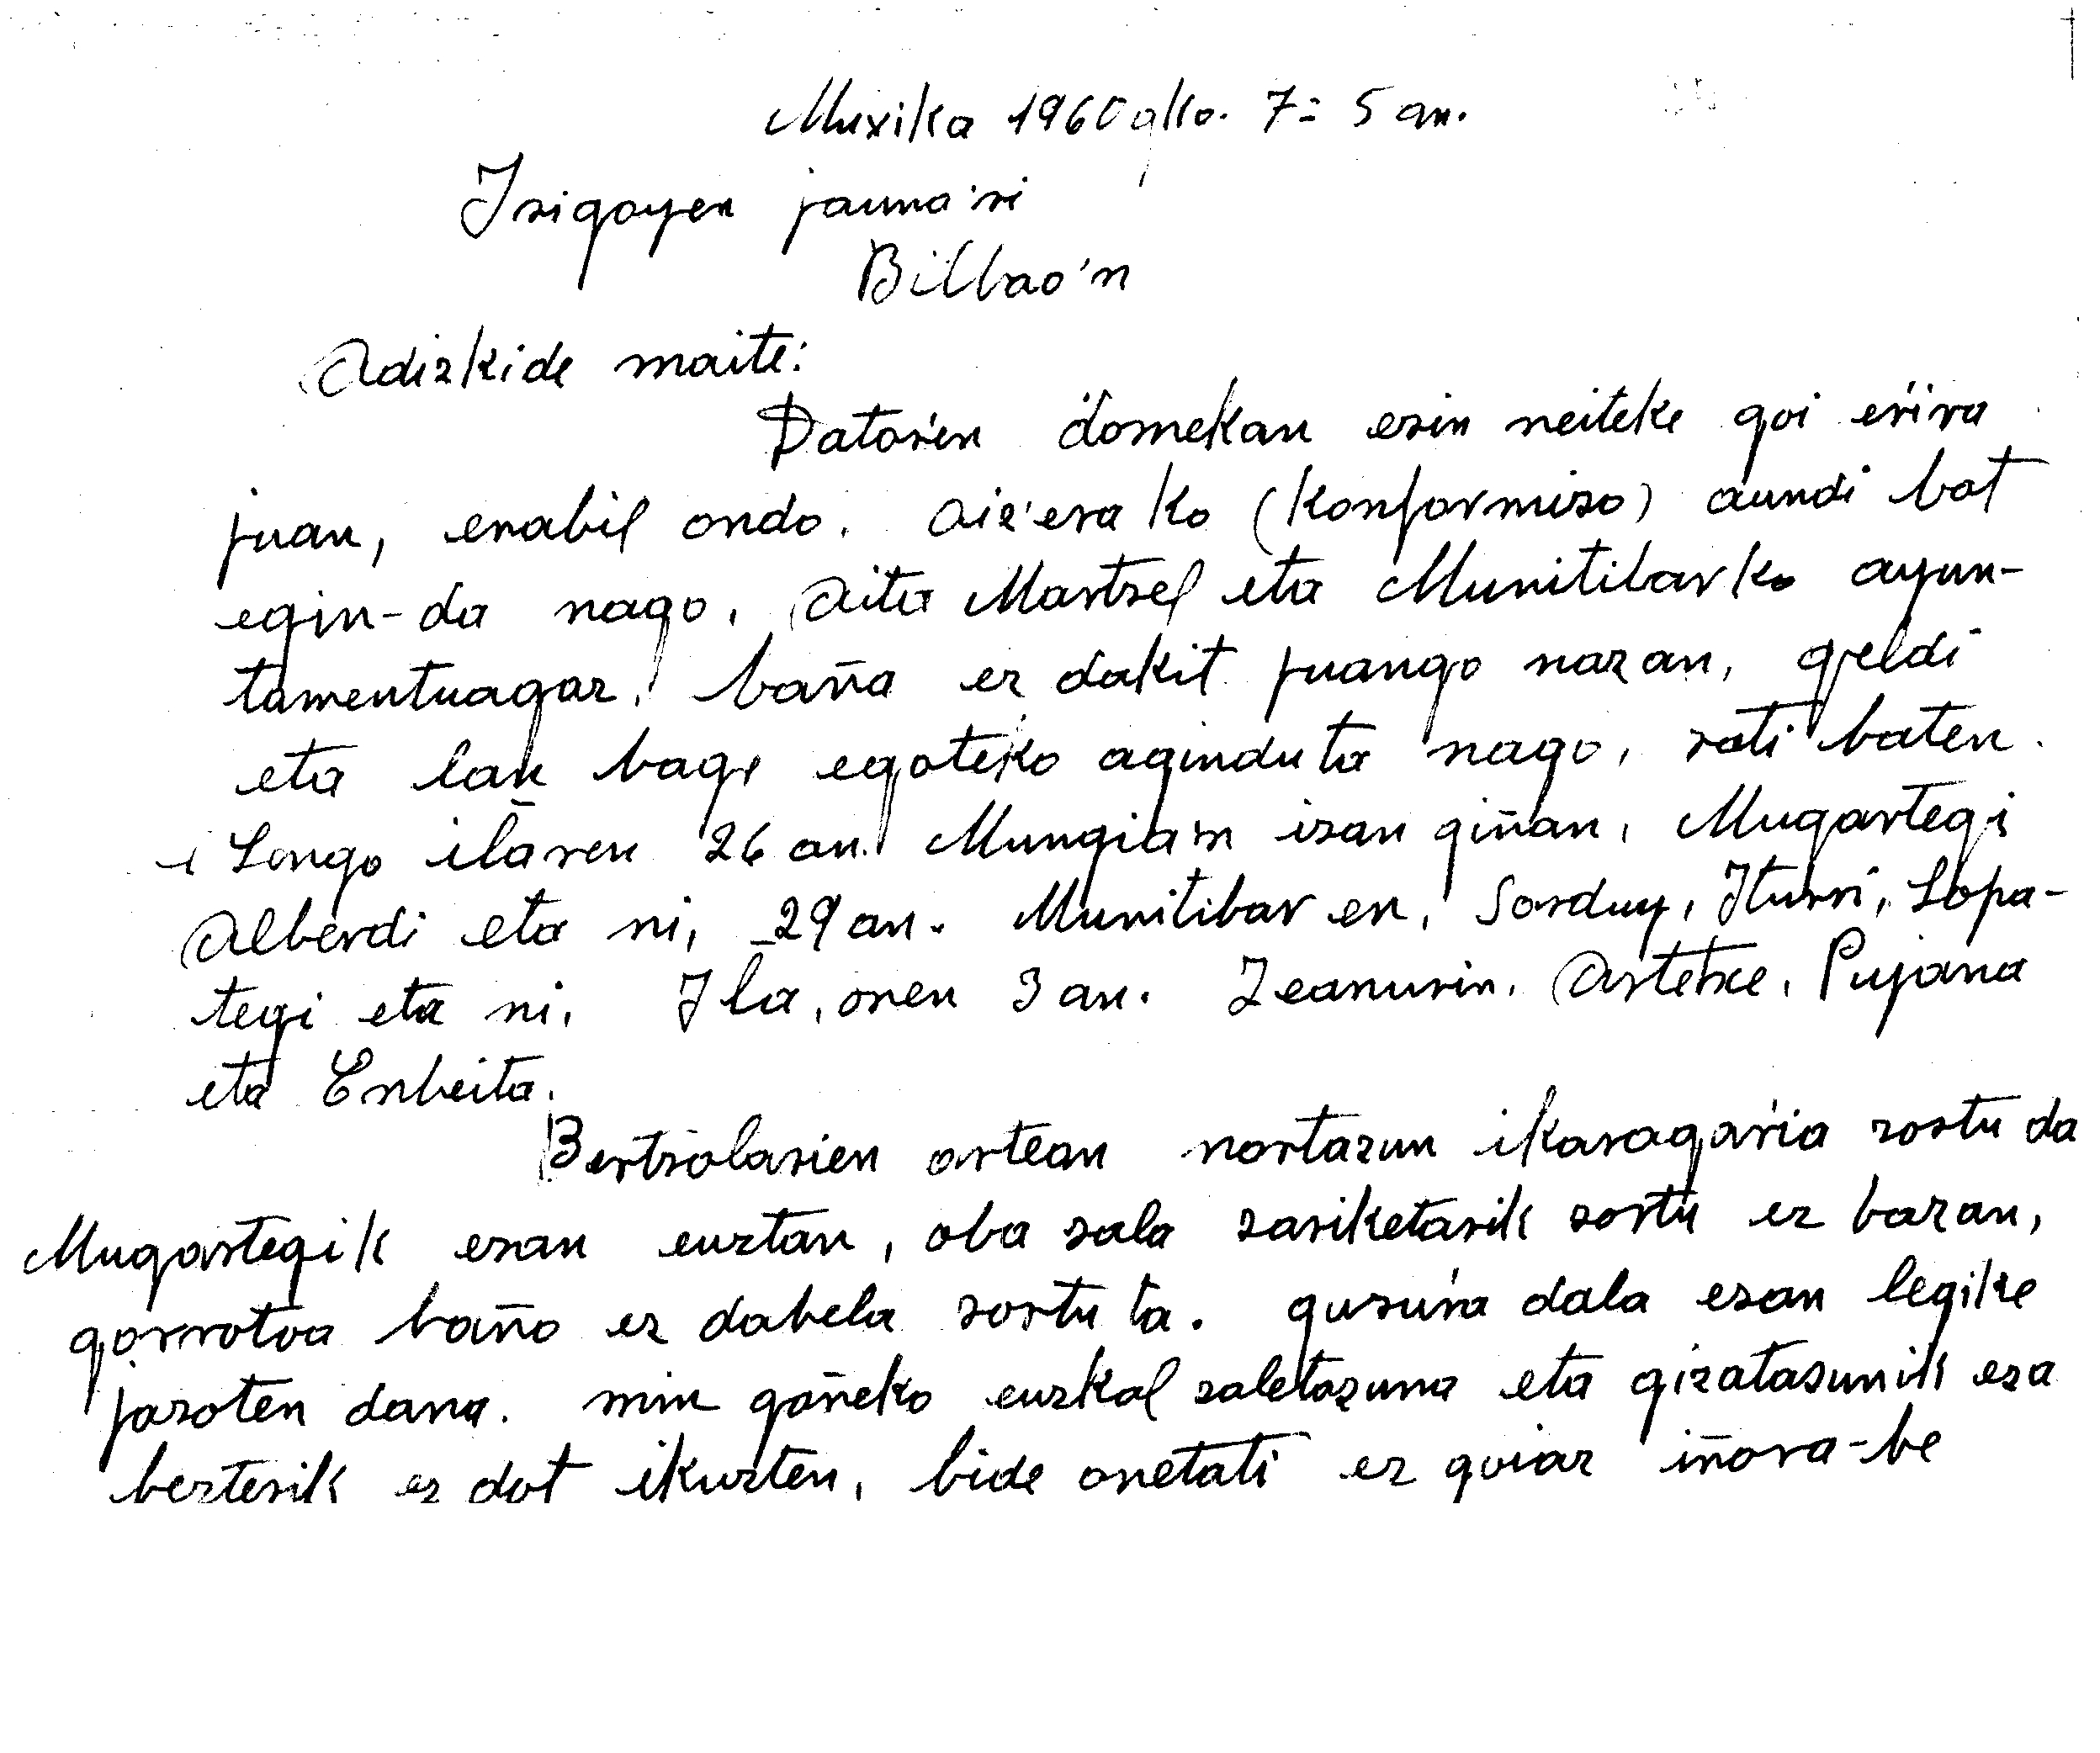 Muxika 1960gko. 7= 5 an.
Irigoyen jauna'ri
Bilbao'n
Adizkide maite:
Datoŕen domekan ezin neiteke goi eŕira
juan, enabil ondo. aiẽerako (konformizo) aundi bat
egin-da nago, Aita Martzel eta Munitibarko ayun-
tamentuagaz, baña ez dakit juango nazan, geldi
eta lan bage egoteko aginduta nago, rati baten.
Longo ilaren 26 an. Mungian izan giñan, Mugartegi
Alberdi eta ni, 29 an. Munitibar en, Sorduy, Iturri, Lopa-
tegi eta ni, Ila, onen 3 an. Zeanurin, Artetxe, Pujana
eta Enbeita.
Bertsolarien artean nortazun ikaragaŕia zortu da
Mugartegik ezan euztan, oba zala zariketarik zortu ez bazan,
gorrotoa baño ez dabela zortu ta. guzuŕa dala ezan legike
jazoten dana. min gañeko euzkal zaletazuna eta gizatasunik eza
bezterik ez dot ikuzten, bide onetati ez goiaz iñora-be